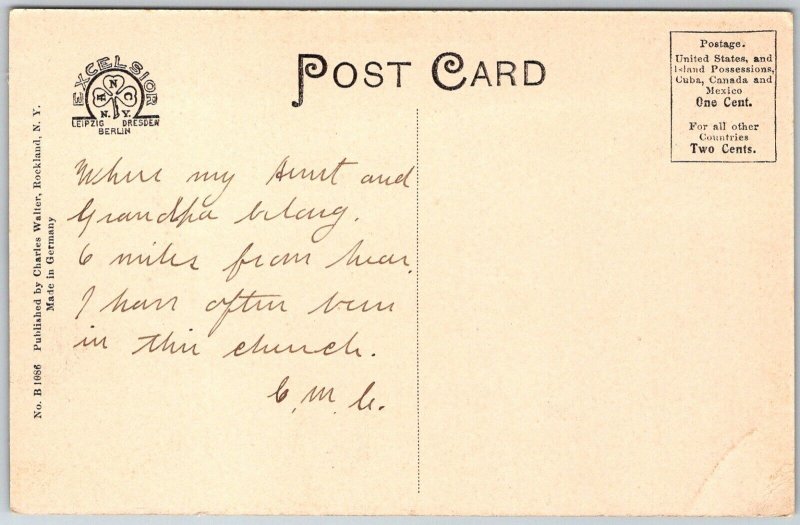 POST CARD
EXCELSIOR
A N C
N. Y.
LEIPZIG DRESDEN
BERLIN
Postage.
United States, and
Island Possessions,
Cuba, Canada and
Mexico
One Cent.
For all other
Countries
Two Cents.
No. B 1086 Published by Charles Walter, Rockland, N. Y.
Made in Germany
Where my Aunt and
Grandpa belong.
6 miles from hear.
I have often been
in this church.
C. M. C.